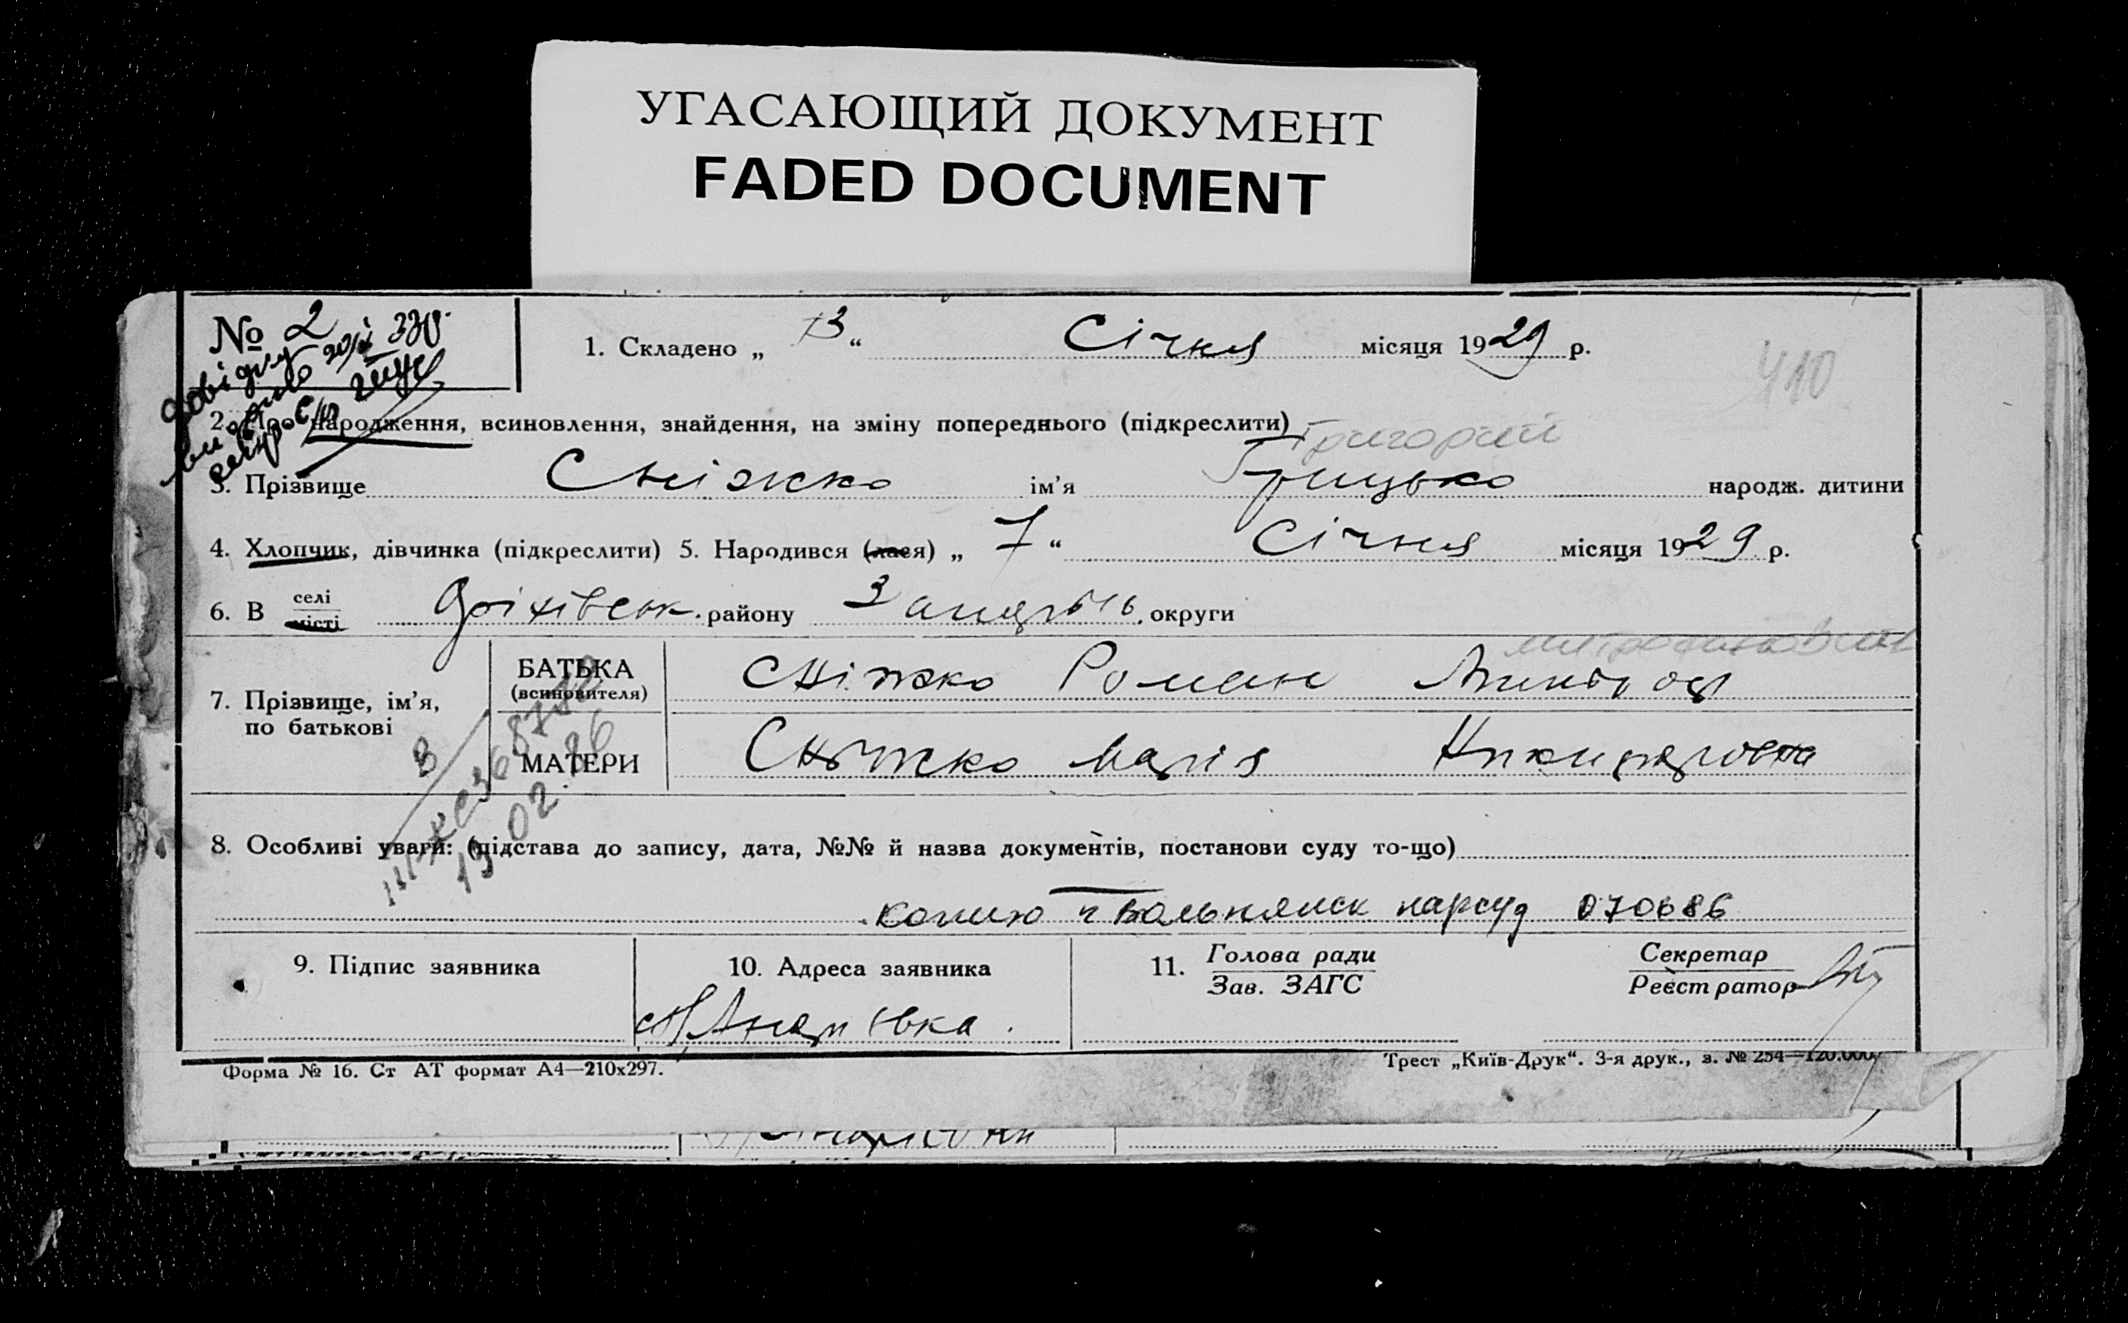 УГАСАЮЩИЙ ДОКУМЕНТ
FADED DOCUMENT
№ 2
1. Складено „ 13 “ Січня місяця 1929 р.
410
2. Про народження, всиновлення, знайдення, на зміну попереднього (підкреслити)
Григорий
3. Прізвище Сніжко ім'я Грицько народж. дитини
4. Хлопчик, дівчинка (підкреслити) 5. Народився (лася) „ 7 “ Січня місяця 1929 р.
6. В селі
місті Оріхівськ. району Запоріз округи
7. Прізвище, ім'я,
по батькові
БАТЬКА
(всиновителя)
Сніжко Роман
МАТЕРИ
Сніжко Марія
III-ЖС 368
13 02. 86
8. Особливі уваги: (підстава до запису, дата, №№ й назва документів, постанови суду то-що)
копию г Вольнянск нарсуд 070686
9. Підпис заявника
10. Адреса заявника
11. Голова ради
Зав. ЗАГС
Секретар
Реєстратор
Форма № 16. Ст АТ формат А4—210х297.
Трест „Київ-Друк“. 3-я друк., з. № 254—120.000